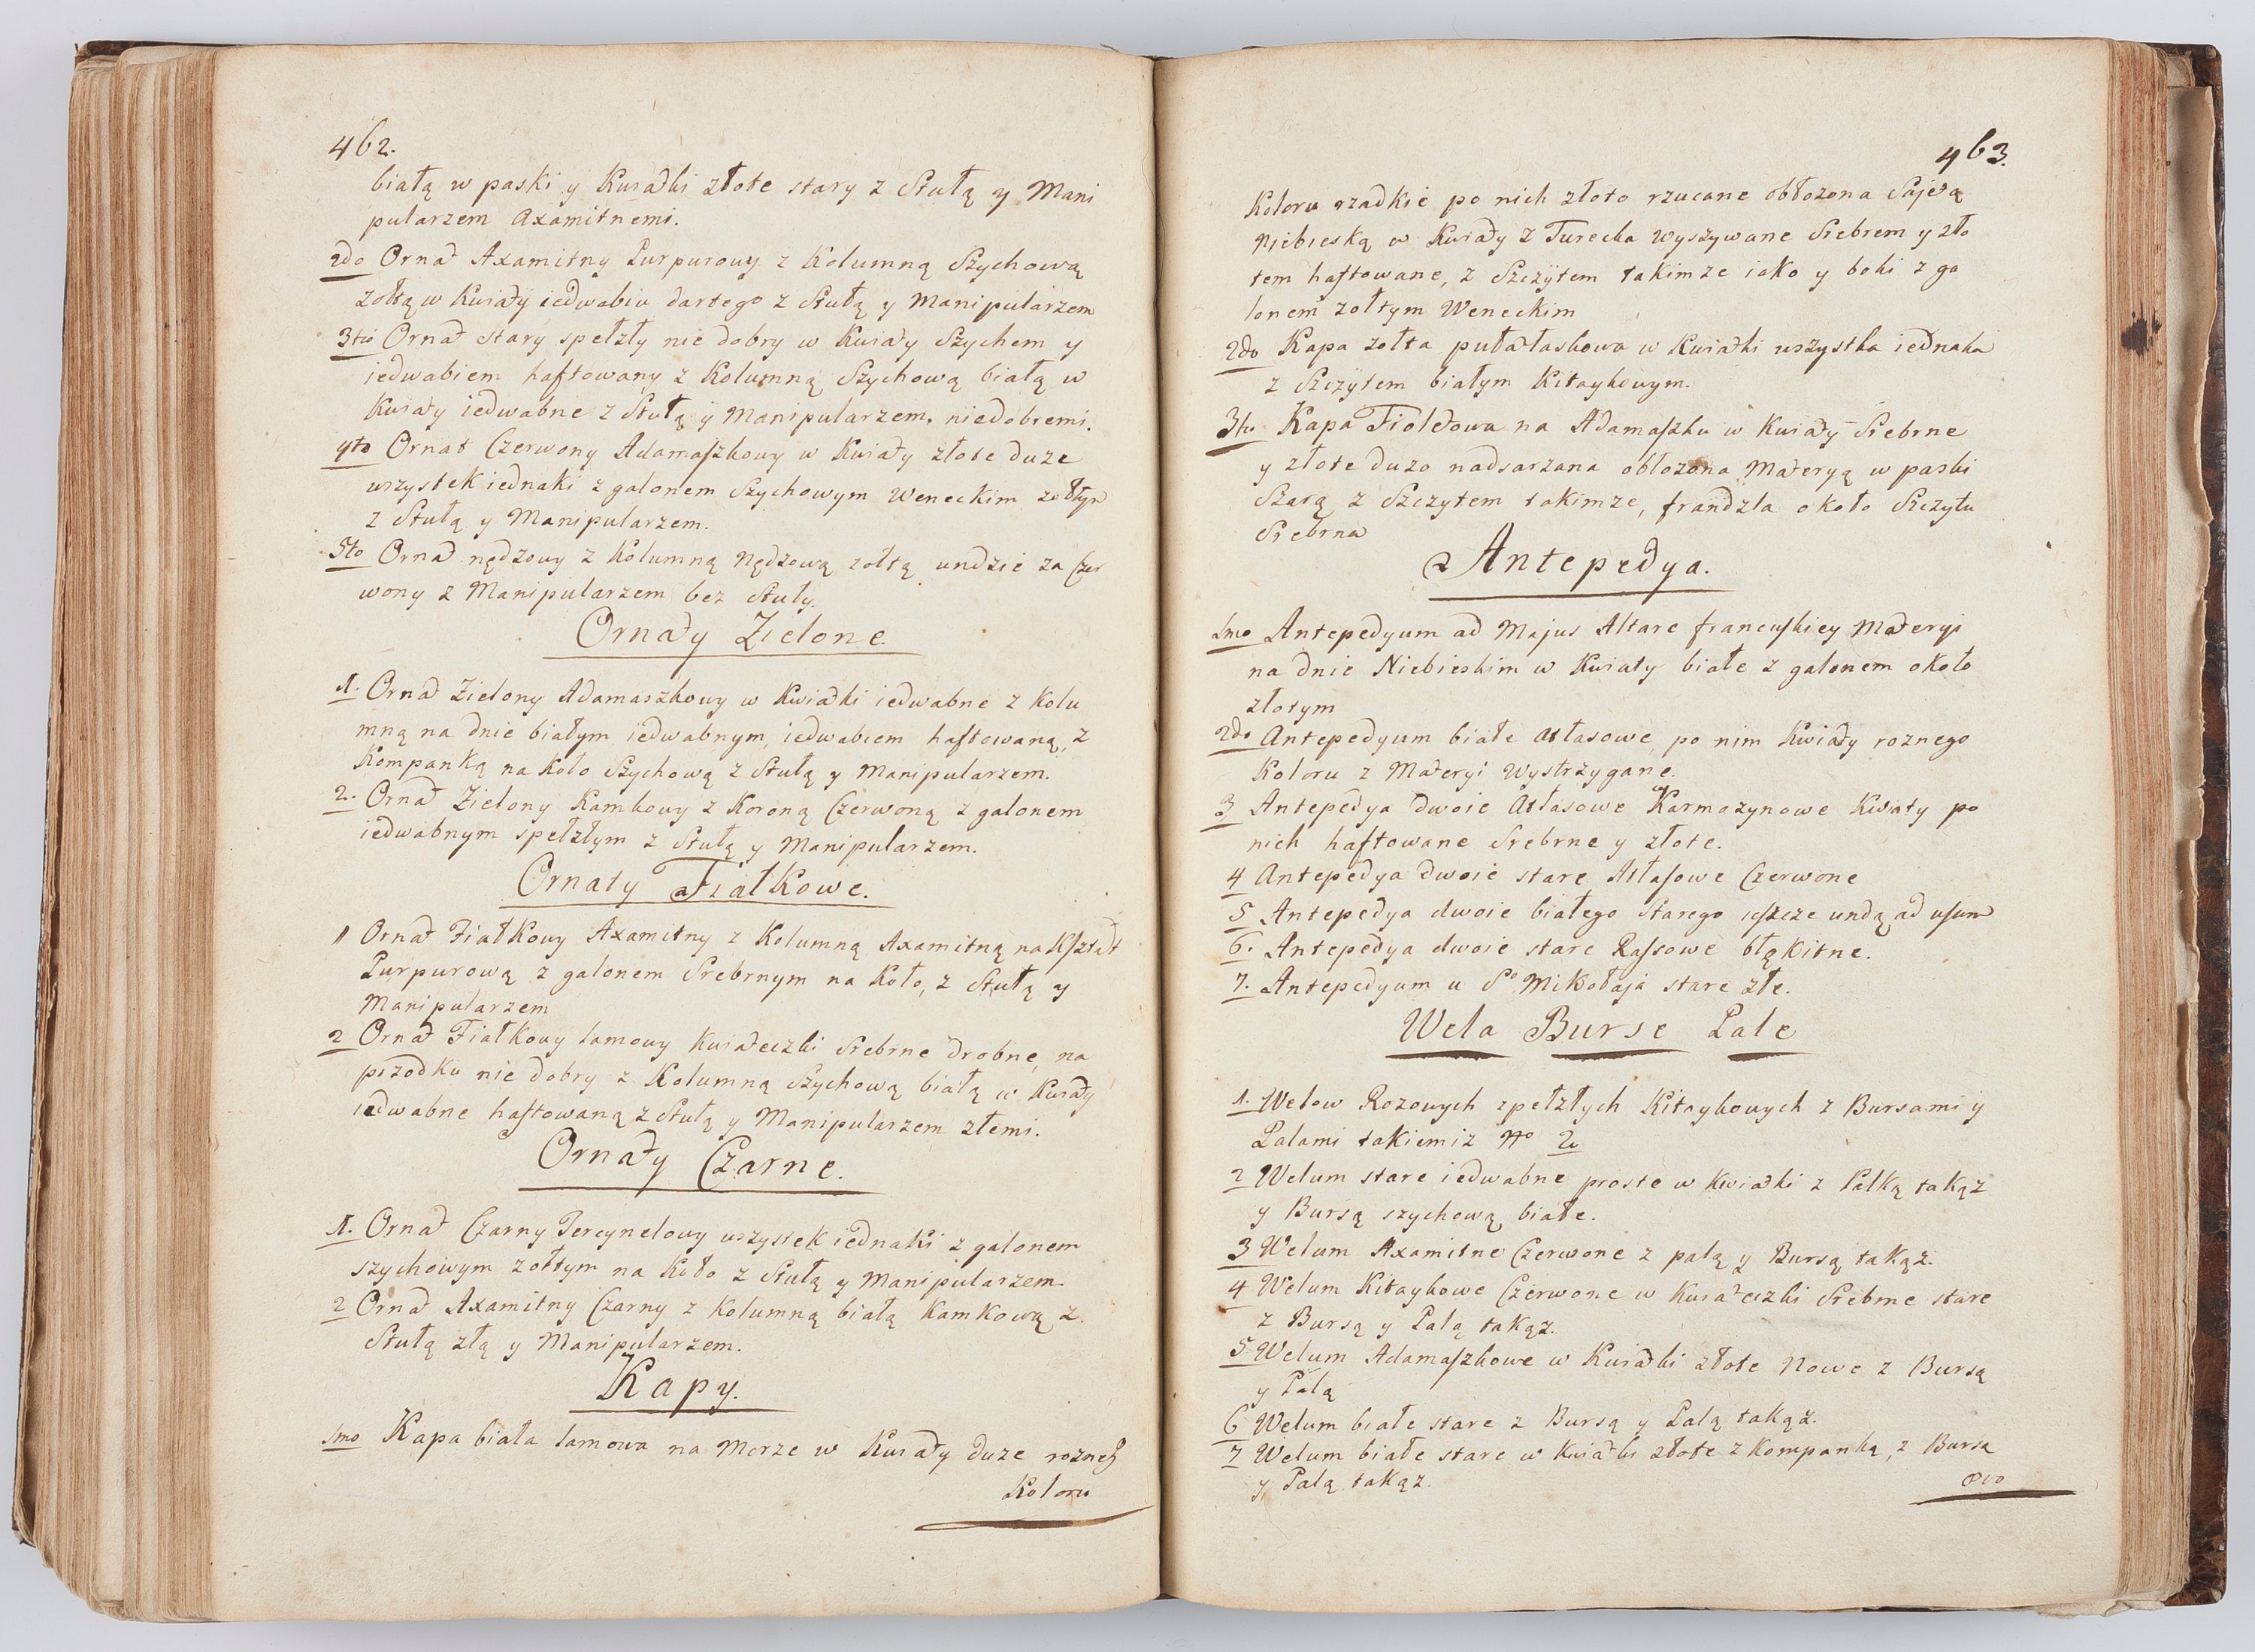 462.
białą w paski y Kwiatki złote stary z Stułą y Mani
pularzem Axamitnemi.
2do Ornat Axamitny Purpurowy z Kolumną Szychową
zołtą w Kwiaty iedwabiu dartego z Stułą y Manipularzem
3tio Ornat stary spełzły nie dobry w Kwiaty Szychem y
iedwabiem haftowany z Kolumną Szychową białą w
Kwiaty iedwabne z Stułą y Manipularzem niedobremi.
4to Ornat Czerwony Adamaszkowy w Kwiaty złote duze
wszystek iednaki z galonem Szychowym Weneckim zołtym
z Stułą y Manipularzem.
5to Ornat nędzowy z Kolumną Nędzową zołtą undzie za Czer
wony z Manipularzem bez Stuły.
Ornaty Zielone
1. Ornat Zielony Adamaszkowy w Kwiatki iedwabne z Kolu
mną na dnie białym iedwabnym, iedwabiem haftowaną, z
Kompanką na koło Szychową z Stułą y Manipularzem.
2. Ornat Zielony Kamkowy z Koroną Czerwoną z galonem
iedwabnym spełzłym z Stułą y Manipularzem.
Ornaty Fiałkowe.
1 Ornat Fiałkowy Axamitny z Kolumną Axamitną na Kształt
Purpurową z galonem Srebrnym na Koło, z Stułą y
Manipularzem
2 Ornat Fiałkowy Lamowy Kwiateczki Srebrne drobne, na
przodku nie dobry z Kolumną Szychową białą w Kwiaty
iedwabne haftowaną z Stułą y Manipularzem złemi.
Ornaty Czarne.
1. Ornat Czarny Tercynelowy wszystek iednaki z galonem
szychowym zołtym na Koło z Stułą y Manipularzem.
2 Ornat Axamitny Czarny z Kolumną białą Kamkową z
Stułą złą y Manipularzem.
Kapy.
1mo Kapa biała Lamowa na Morze w Kwiaty duze roznego
Koloru
463.
Koloru rzadkie po nich złoto rzucane obłozona Sajetą
Niebieską w Kwiaty z Turecka wyszywane Srebrem y zło
tem haftowane, z Szczytem takimze iako y boki z ga
lonem zołtym Weneckim
2do Kapa zołta pułatłaskowa w Kwiatki wszystka iednaka
z Szczytem białym Kitaykowym.
3tio Kapa Fioletowa na Adamaszku w Kwiaty Srebrne
y złote duzo nadsarzana obłozona Materyą w paski
Szarą z Szczytem takimze, frandzla około Szczytu
Srebrna
Antepedya.
1mo Antepedyum ad Majus Altare francuskiey Materyi
na dnie Niebieskim w Kwiaty białe z galonem około
złotym
2do Antepedyum białe Atłasowe, po nim Kwiaty roznego
Koloru z Materyi wystrzygane.
3 Antepedya dwoie Atłasowe Karmazynowe Kwiaty po
nich haftowane Srebrne y złote.
4 Antepedya dwoie stare Atłasowe Czerwone
5 Antepedya dwoie białego Starego ieszcze undą ad usum
6. Antepedya dwoie stare Rassowe błękitne.
7. Antepedyum u So Mikołaja stare złe.
Wela Burse Pale
1. Welow Rozowych spełzłych Kitaykowych z Bursami y
Palami takiemiz No 2.
2 Welum stare iedwabne proste w Kwiatki z Palką takąz
y Bursą szychową białe.
3 Welum Axamitne Czerwone z palą y Bursą takąz.
4 Welum Kitaykowe Czerwone w Kwiateczki Srebrne stare
z Bursą y Palą takąz.
5 Welum Adamaszkowe w Kwiatki złote Nowe z Bursą
y Palą
6 Welum białe stare z Bursą y Palą takąz.
7 Welum białe stare w Kwiatki złote z Kompanką, z Bursą
y Palą takąz.
8vo